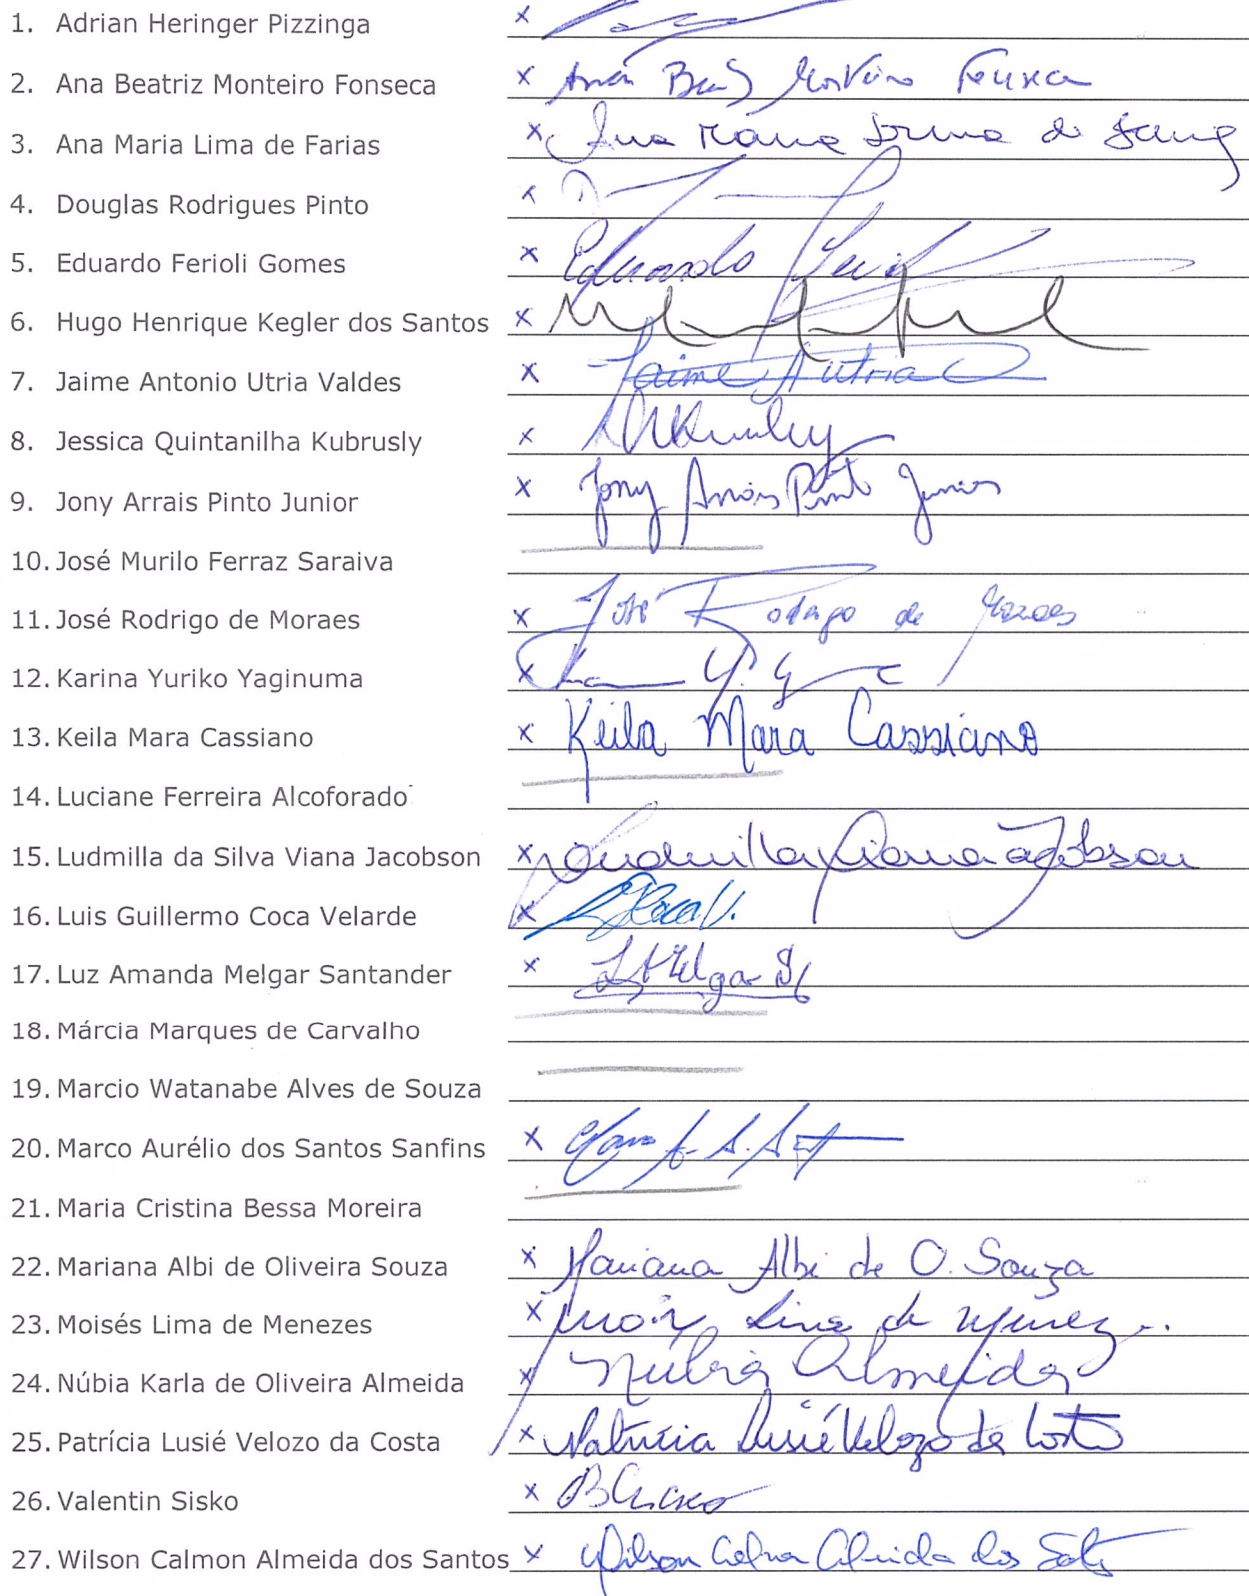 1. Adrian Heringer Pizzinga x
2. Ana Beatriz Monteiro Fonseca x
3. Ana Maria Lima de Farias x Ana Maria Lima de Farias
4. Douglas Rodrigues Pinto x
5. Eduardo Ferioli Gomes x Eduardo
6. Hugo Henrique Kegler dos Santos x
7. Jaime Antonio Utria Valdes x Jaime Utria
8. Jessica Quintanilha Kubrusly x
9. Jony Arrais Pinto Junior x Jony Arrais Pinto Junior
10. José Murilo Ferraz Saraiva
11. José Rodrigo de Moraes x José Rodrigo de Moraes
12. Karina Yuriko Yaginuma x
13. Keila Mara Cassiano x Keila Mara Cassiano
14. Luciane Ferreira Alcoforado
15. Ludmilla da Silva Viana Jacobson x Ludmilla Viana Jacobson
16. Luis Guillermo Coca Velarde x
17. Luz Amanda Melgar Santander x
18. Márcia Marques de Carvalho
19. Marcio Watanabe Alves de Souza
20. Marco Aurélio dos Santos Sanfins x
21. Maria Cristina Bessa Moreira
22. Mariana Albi de Oliveira Souza x Mariana Albi de O. Souza
23. Moisés Lima de Menezes x Lima de Menezes
24. Núbia Karla de Oliveira Almeida x Núbia Almeida
25. Patrícia Lusié Velozo da Costa x Patrícia Lusié Velozo da Costa
26. Valentin Sisko x
27. Wilson Calmon Almeida dos Santos x Wilson Calmon Almeida dos Santos